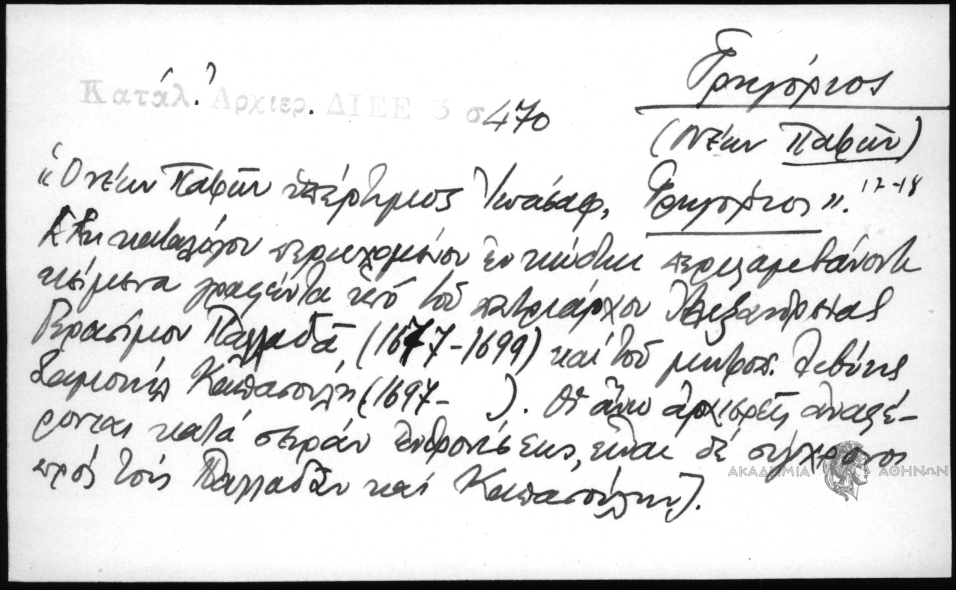 Γρηγόριος
Κατάλ. Ἀρχιερ. ΔΙΕΕ 3 σ 470
(Νέων Παφῶν)
"Ὁ Νέων Παφῶν ὑπέρτιμος Γρηγόριος". 17-18
Ἐκ καταλόγου περιεχομένου ἐν κώδικι περιλαμβάνοντι
κείμενα γραφέντα ὑπό τοῦ πατριάρχου Ἀλεξανδρείας
Γερασίμου Παλλαδᾶ, (1677-1699) καί τοῦ μητροπ. Λιβύης
Σαμουήλ Καπασούλη (1697- ). Οἱ ἄνω ἀρχιερεῖς ἀναφέ-
ρονται κατά σειράν ἐνθρονίσεως, εἶναι δέ σύγχρονοι
πρός τούς Παλλαδᾶν καί Καπασούλην).
ΑΚΑΔΗΜΙΑ ΑΘΗΝΩΝ